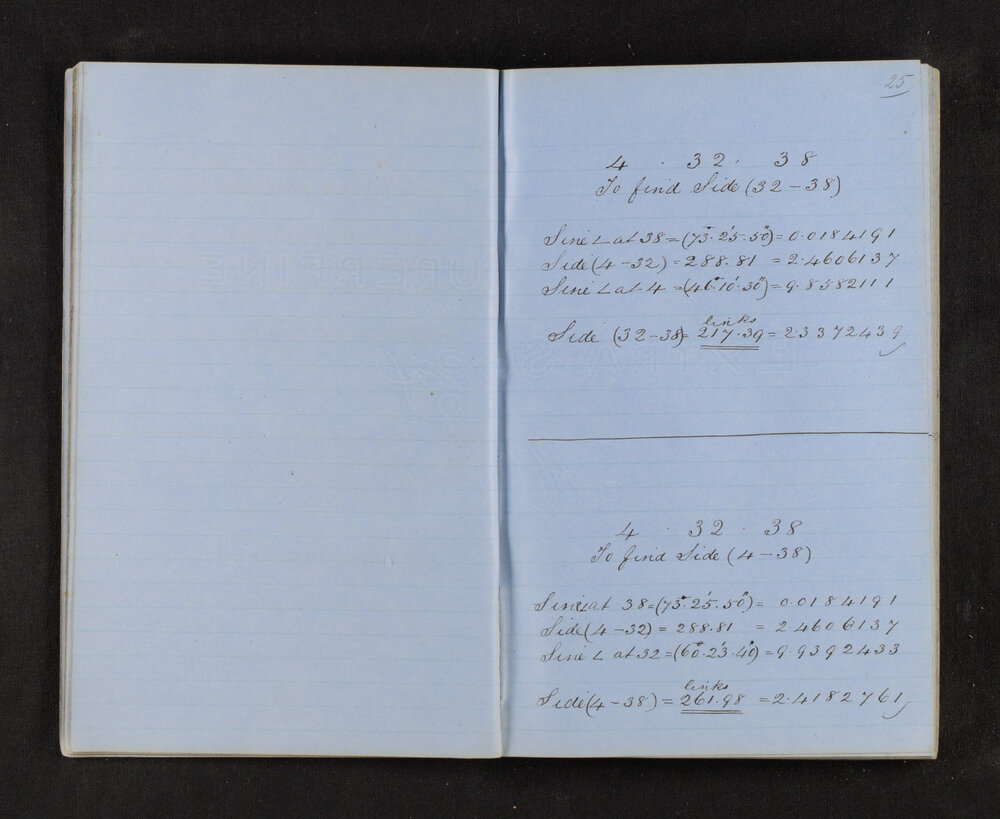 25
4 . 32 . 38
To find Side (32 - 38)
Sine ∠ at 38 = (73°. 25'. 50") = 0.0184191
Side (4 - 32) = 288.81 = 2.4606137
Sine ∠ at 4 = (46°. 10'. 30") = 9.8582111
links
Side (32 - 38) = 217.39 = 2.3372439
4 . 32 . 38
To find Side (4 - 38)
Sine ∠ at 38 = (73°. 25'. 50") = 0.0184191
Side (4 - 32) = 288.81 = 2.4606137
Sine ∠ at 32 = (60°. 23'. 40") = 9.9392433
links
Side (4 - 38) = 261.98 = 2.4182761